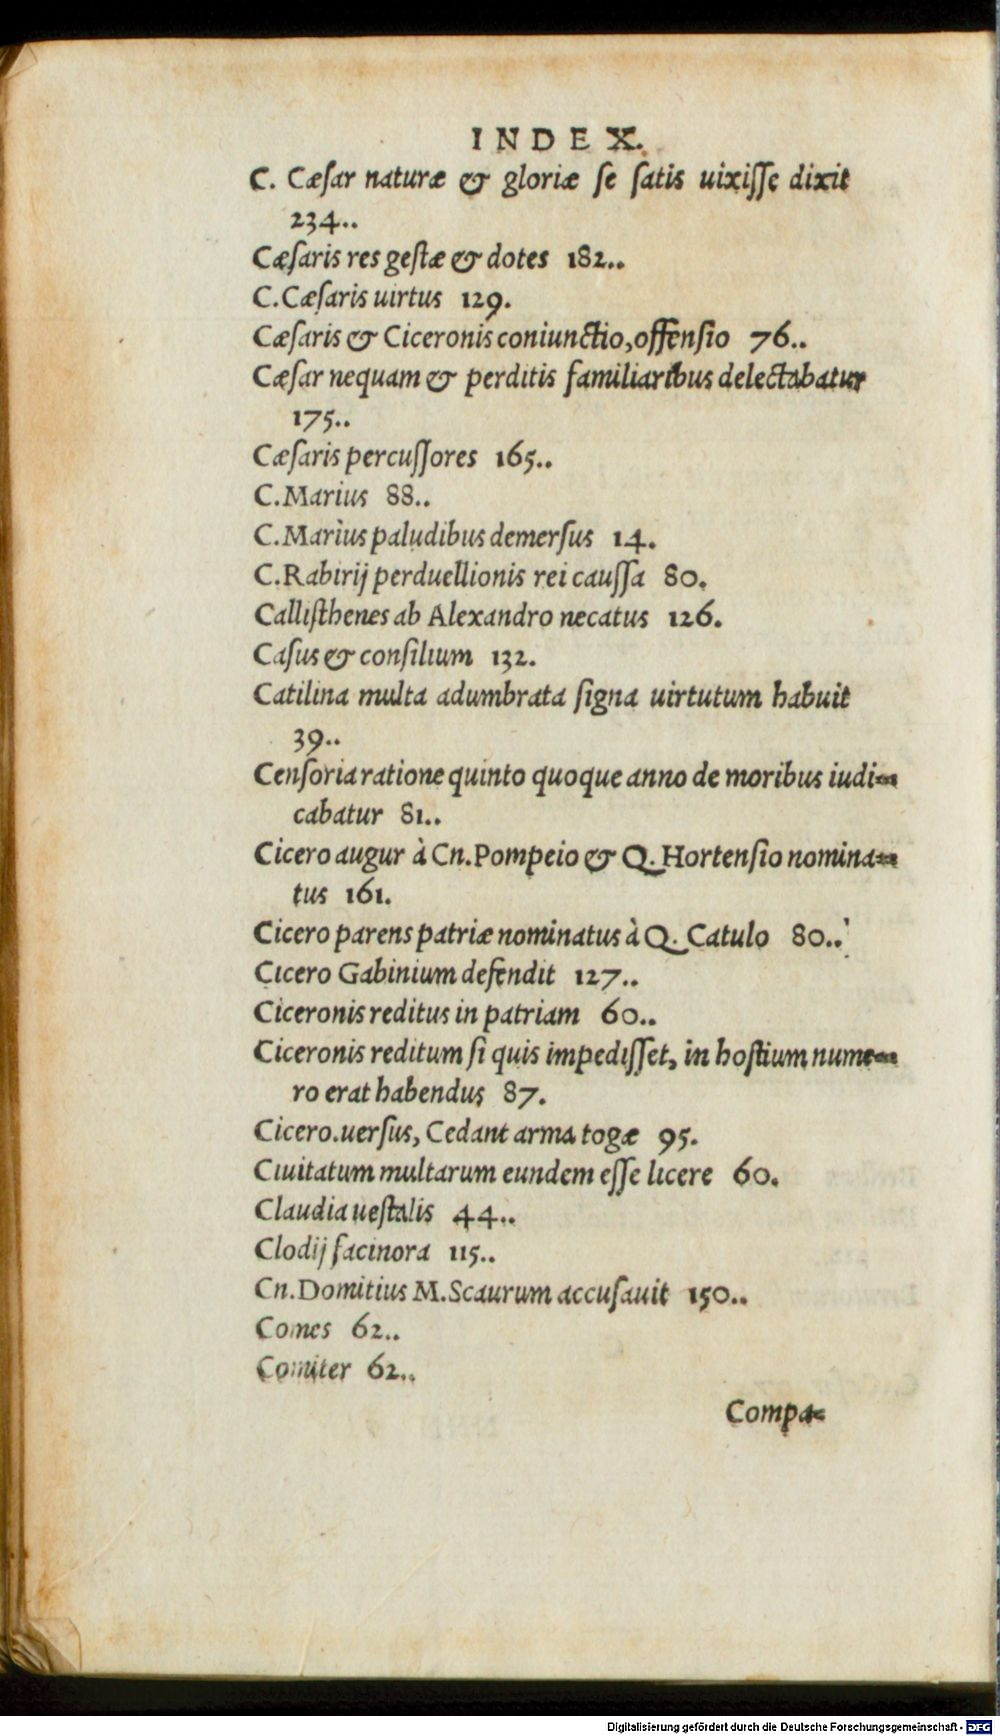 INDEX.
C. Cæſar naturæ & gloriæ ſe ſatis uixiſſe dixit
234..
Cæſaris res geſtæ & dotes 182..
C.Cæſaris uirtus 129.
Cæſaris & Ciceronis coniunctio,offenſio 76..
Cæſar nequam & perditis familiaribus delectabatur
175..
Cæſaris percuſſores 165..
C.Marius 88..
C.Marius paludibus demerſus 14.
C.Rabirij perduellionis rei cauſſa 80.
Calliſthenes ab Alexandro necatus 126.
Caſus & conſilium 132.
Catilina multa adumbrata ſigna uirtutum habuit
39..
Cenſoria ratione quinto quoque anno de moribus iudi=
cabatur 81..
Cicero augur à Cn.Pompeio & Q. Hortenſio nomina=
tus 161.
Cicero parens patriæ nominatus à Q. Catulo 80..
Cicero Gabinium defendit 127..
Ciceronis reditus in patriam 60..
Ciceronis reditum ſi quis impediſſet, in hoſtium nume=
ro erat habendus 87.
Cicero.uerſus, Cedant arma togæ 95.
Ciuitatum multarum eundem eſſe licere 60.
Claudia ueſtalis 44..
Clodij facinora 115..
Cn.Domitius M.Scaurum accuſauit 150..
Comes 62..
Comiter 62..
Compa=
Digitalisierung gefördert durch die Deutsche Forschungsgemeinschaft - DFG